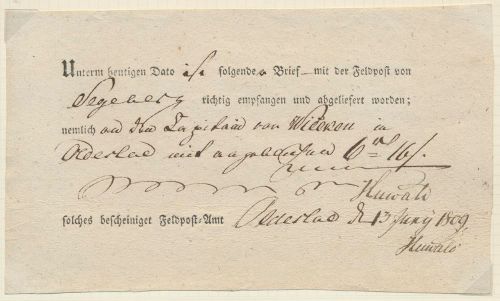 Unterm heutigen Dato ist folgender Brief mit der Feldpost von
Segeberg richtig empfangen und abgeliefert worden;
nemlich an den Capitain von in
Oldesloe mit 6 16 ß.
solches bescheiniget Feldpost-Amt Oldesloe d 13 Juny 1809